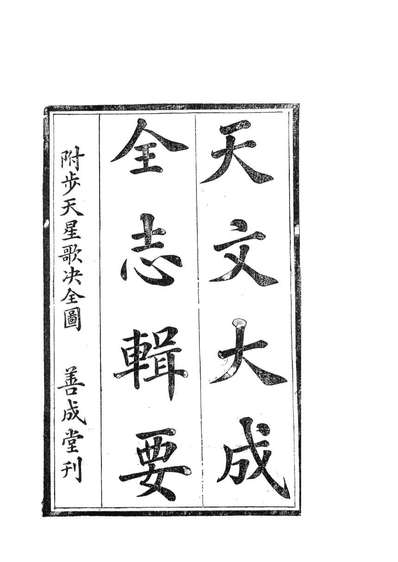 天文大成
全志輯要
附步天星歌决全圖 善成堂刊